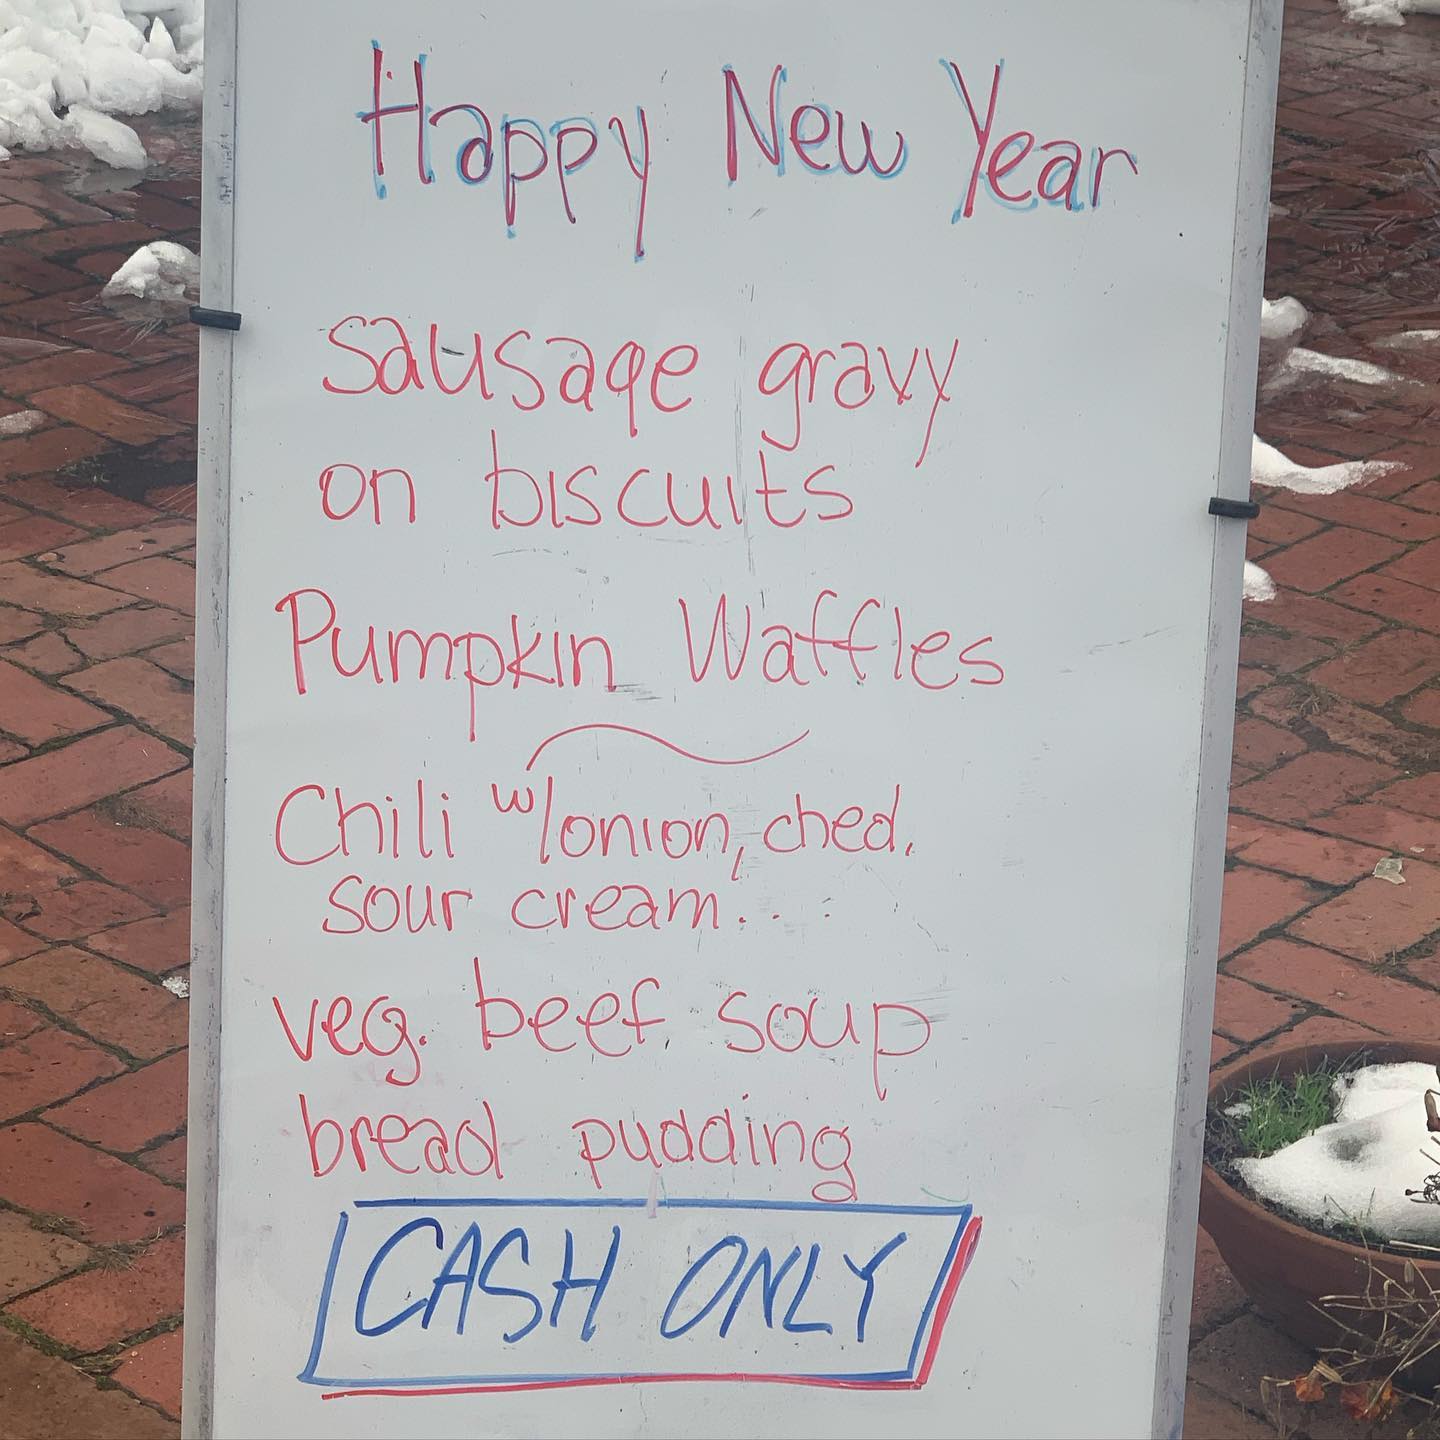 Happy New Year
Sausage gravy
on biscuits
Pumpkin Waffles
Chili w/onion, ched.
sour cream...
veg. beef soup
bread pudding
CASH ONLY